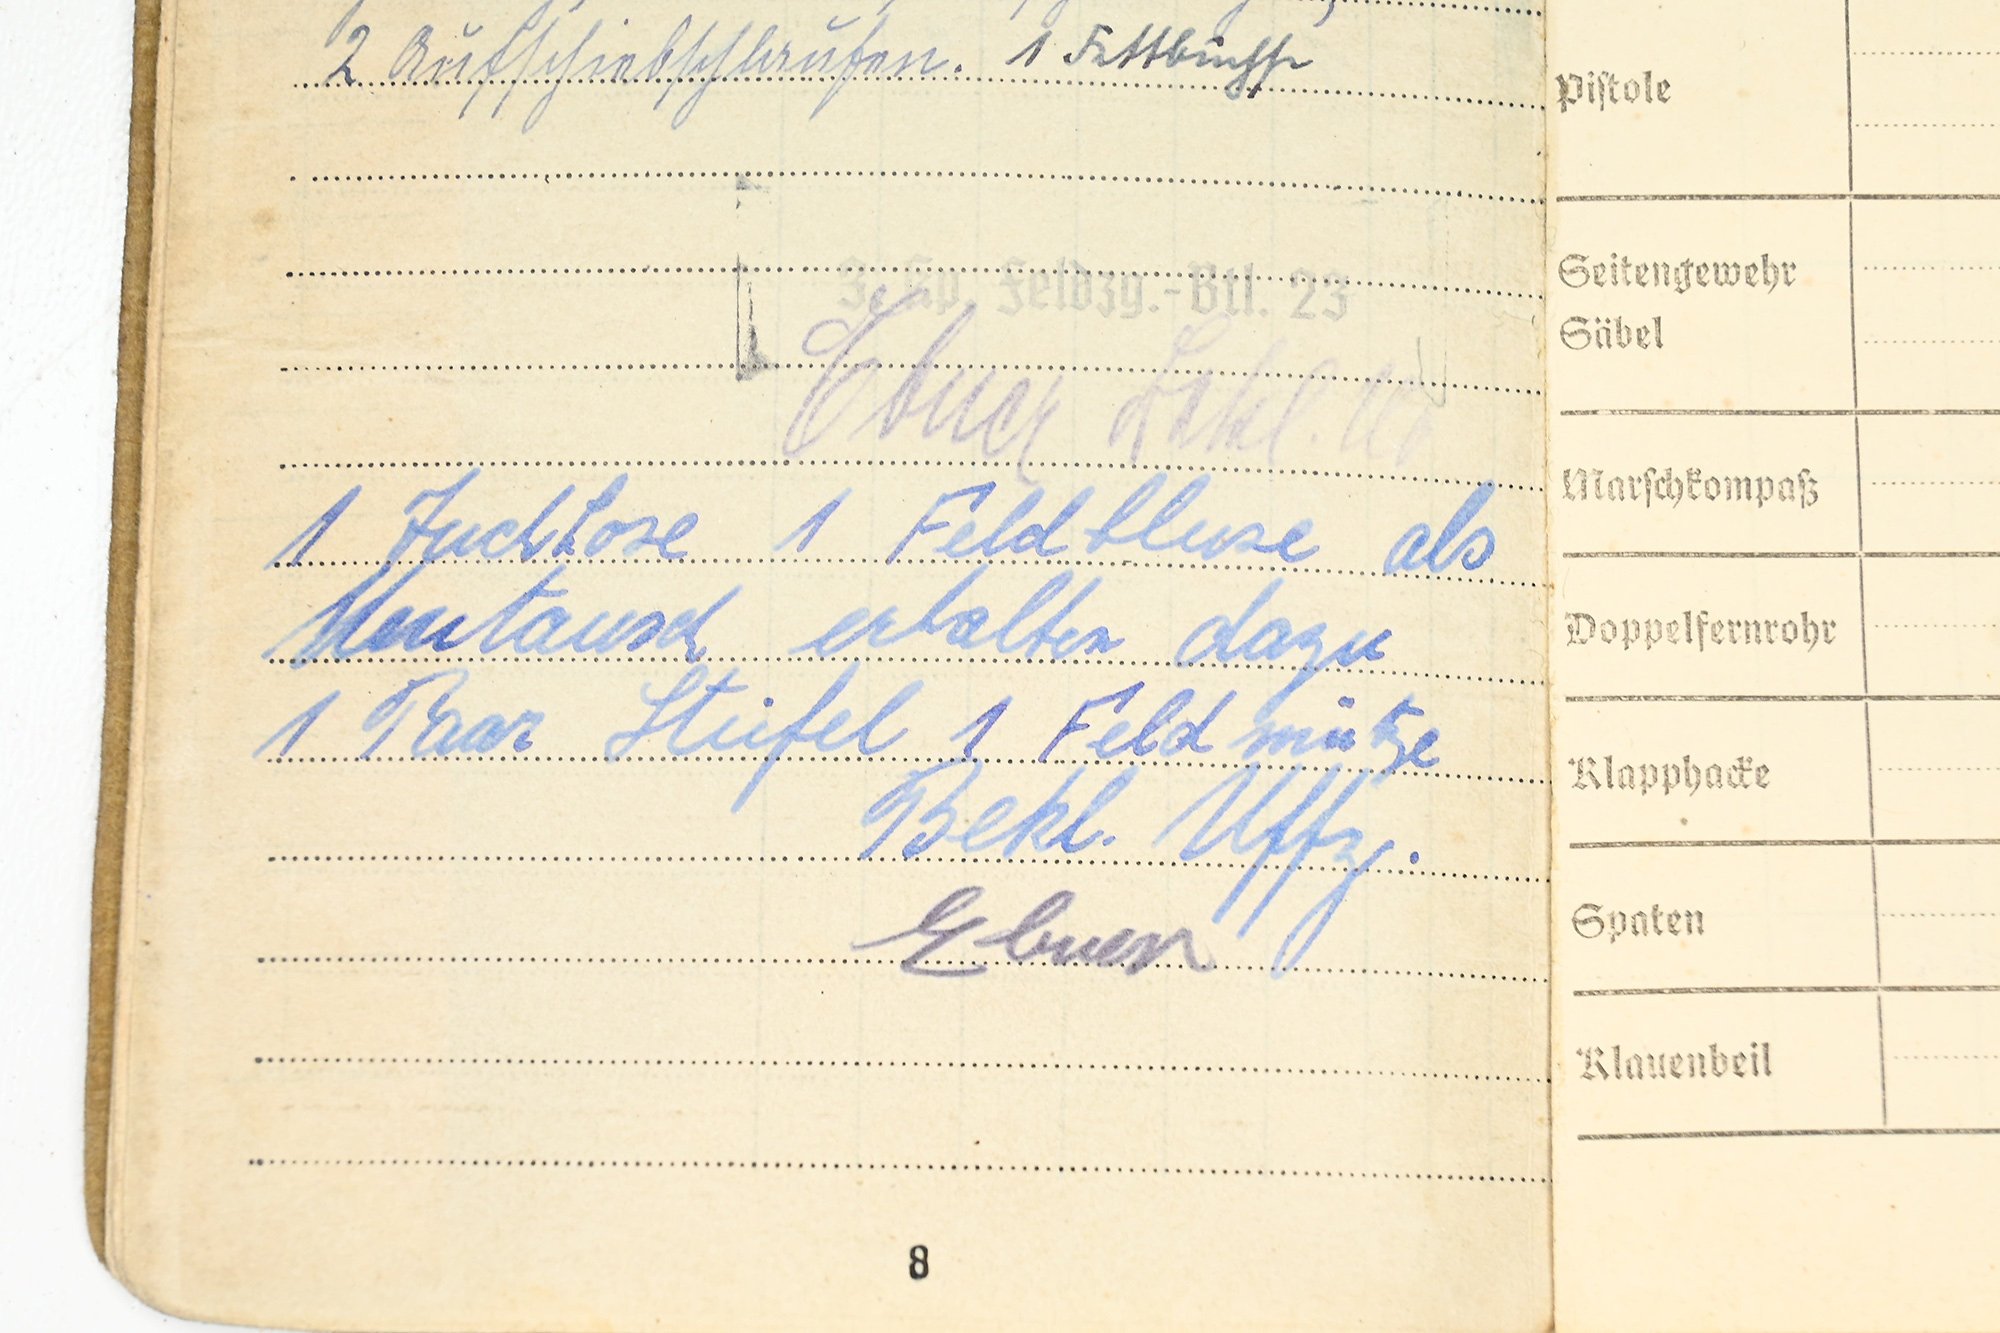 2 Aufschiebschlaufen. 1 Fettbüchse
3. Kp. Feldzg.-Btl. 23
Ebner Bekl. Uf
1 Tuchhose 1 Feldbluse als
Neutausch erhalten dazu
1 Paar Stiefel 1 Feldmütze
Bekl. Uffz.
Ebner
8
Pistole
Seitengewehr
Säbel
Marschkompaß
Doppelfernrohr
Klapphacke
Spaten
Klauenbeil